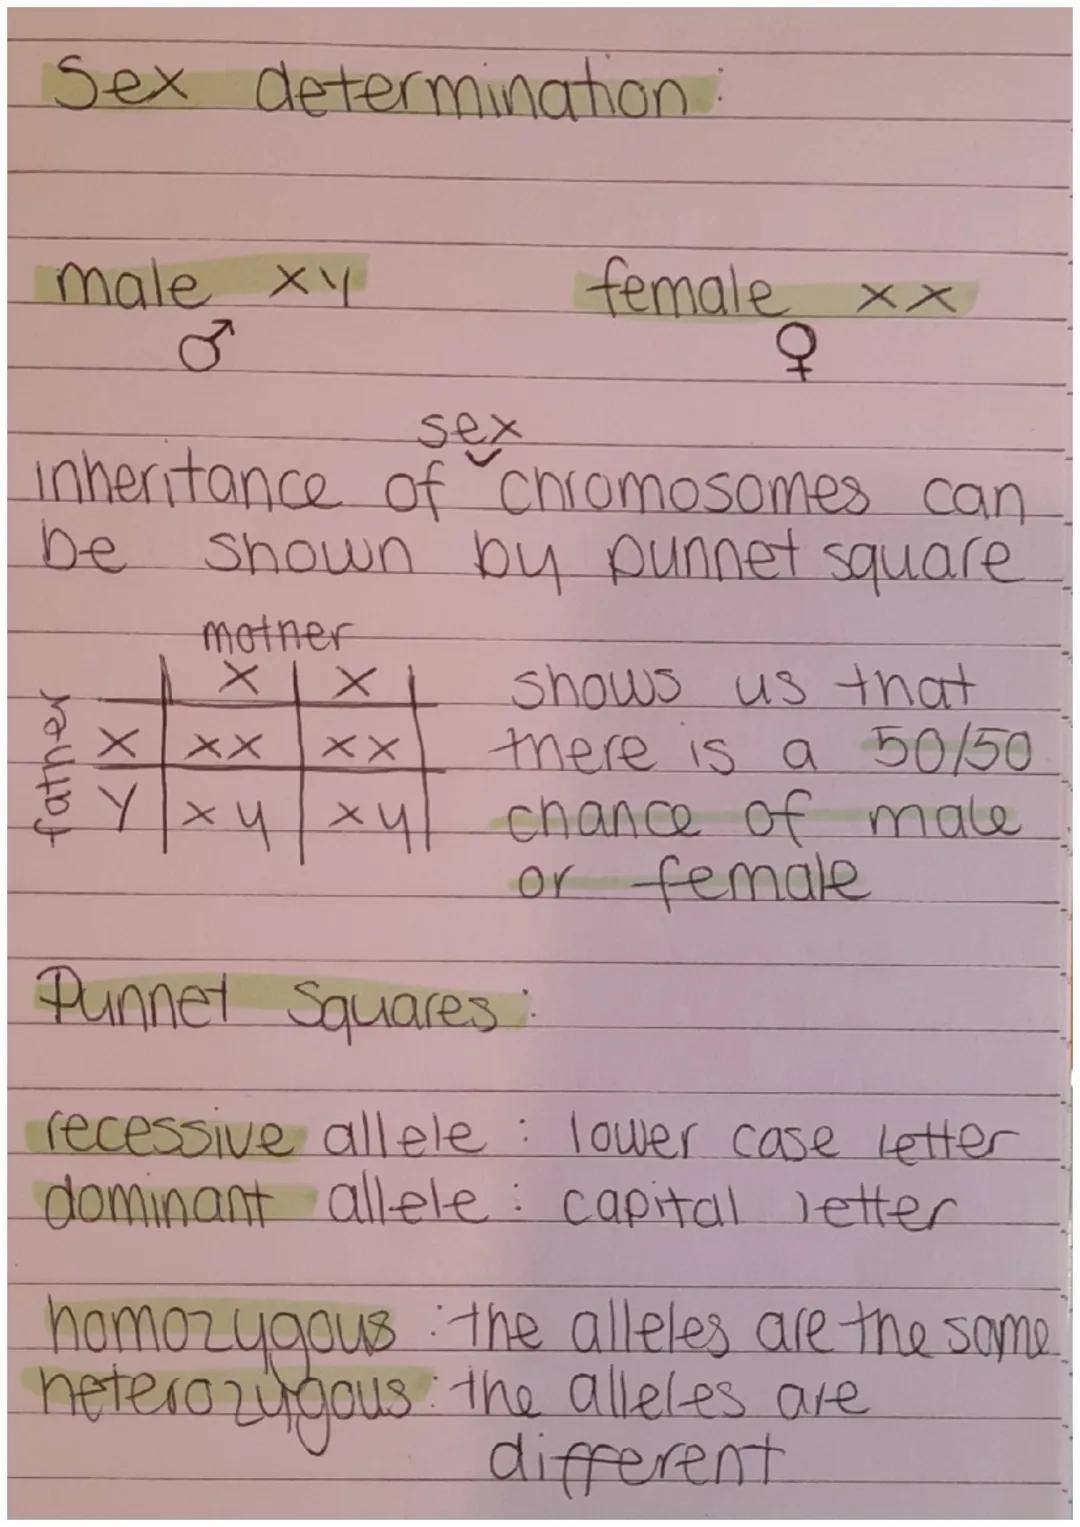 Sex determination:
male xy
female xx
♂
♀
sex
inheritance of chromosomes can
be shown by punnet square
mother
X X
father
X xx xx
Y xy xy
shows us that
there is a 50/50
chance of male
or female
Punnet Squares:
recessive allele: lower case letter
dominant allele: capital letter
homozygous: the alleles are the same
heterozygous: the alleles are
different